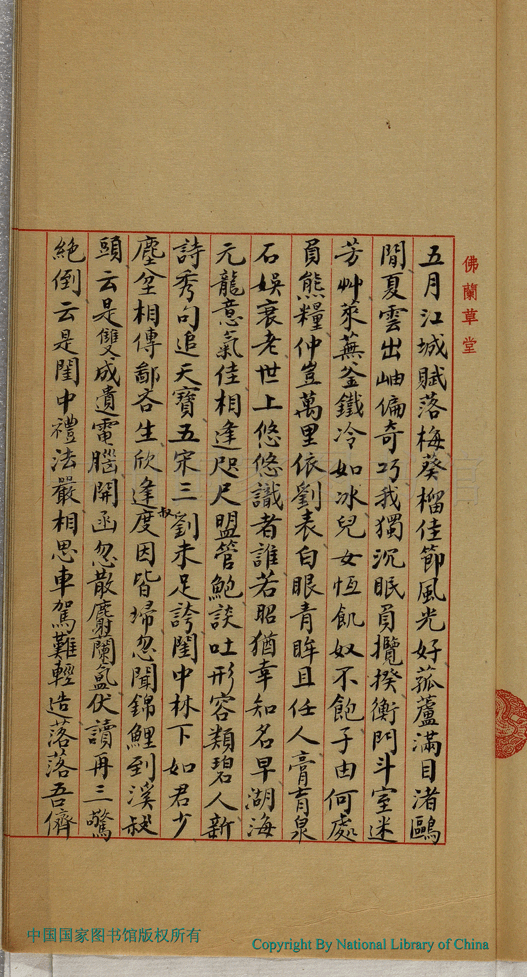 佛蘭草堂
五月江城賦落梅葵榴佳節風光好菰蘆滿目渚鷗
閒夏雲出岫偏奇巧我獨沉眠負攬揆衡門斗室迷
芳艸萊蕪釜鐵冷如冰兒女恆飢奴不飽子由何處
負熊糧仲豈萬里依劉表白眼青眸且任人膏肓泉
石娛衰老世上悠悠識者誰若昭猶幸知名早湖海
元龍意氣佳相逢咫尺盟管鮑談吐形容類碧人新
詩秀句追天寶五宋三劉未足誇閨中林下如君少
塵坌相傳鄙吝生欣逢度因皆埽忽聞錦鯉到溪
叔
頭云是雙成遺電腦開函忽散麝蘭氳伏讀再三驚
絕倒云是閨中禮法嚴相思車駕難輕造落落吾儕
中国国家图书馆版权所有
Copyright By National Library of China